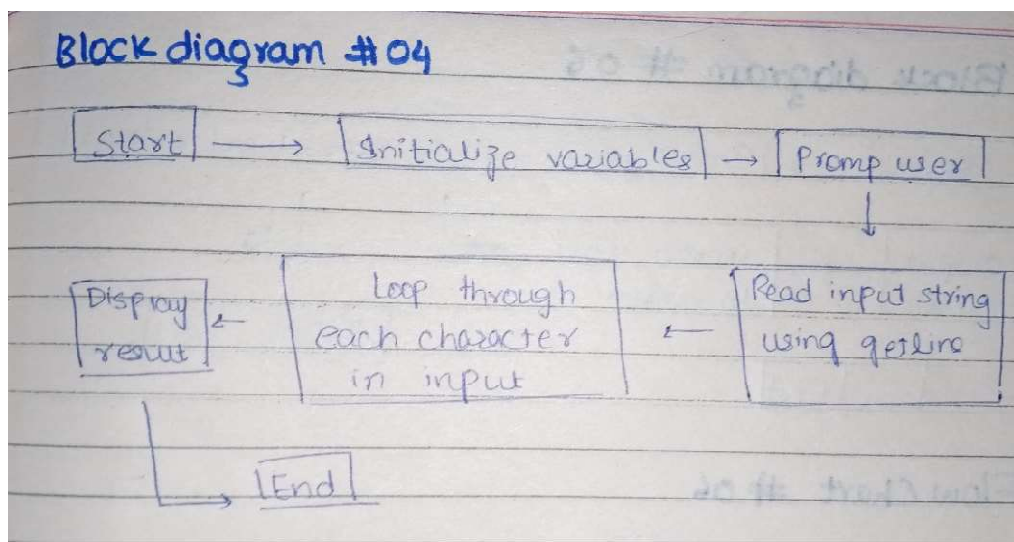 Block diagram #04
Start
Initialize variables
Promp user
Read input string
using getline
Loop through
each character
in input
Display
result
End